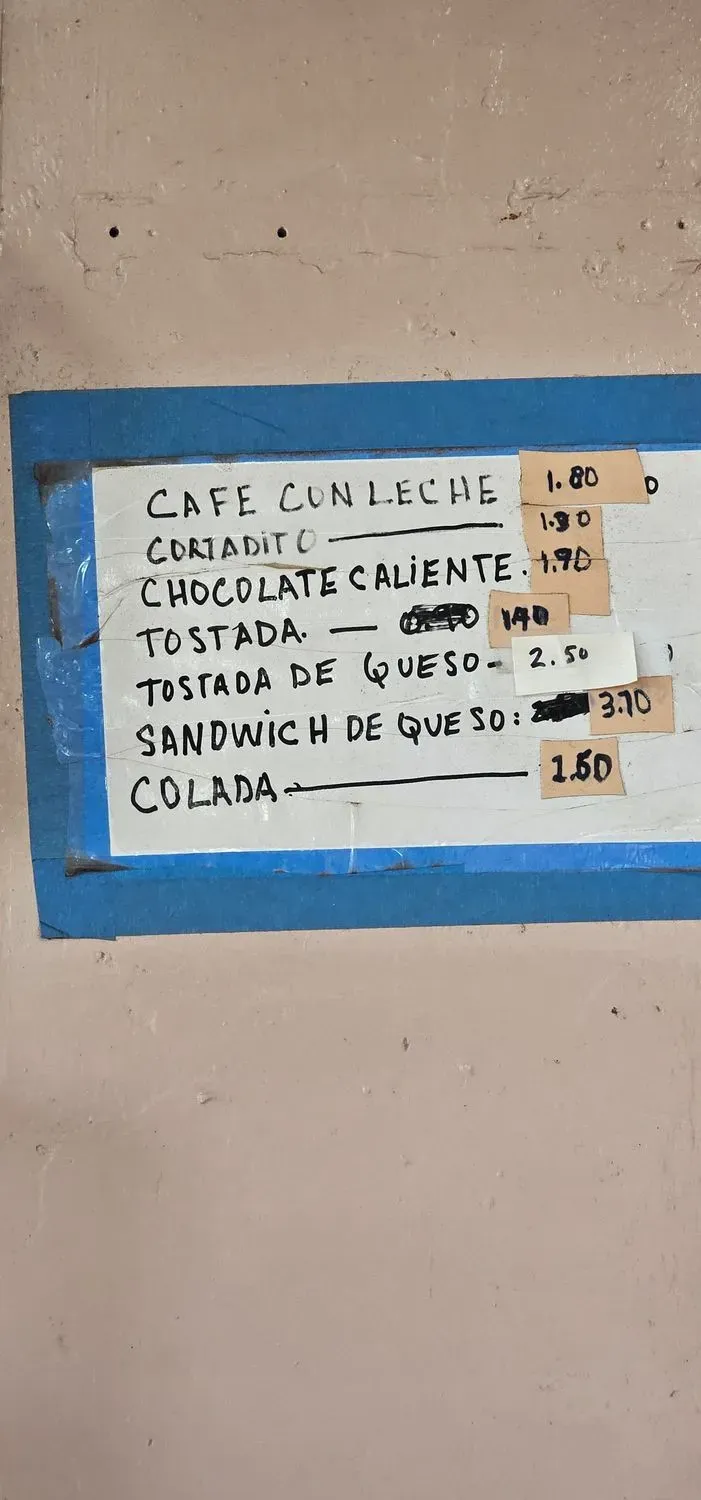 CAFE CON LECHE 1.80
CORTADITO —
CHOCOLATE CALIENTE. 1.90
TOSTADA. — 1.40
TOSTADA DE QUESO - 2.50
SANDWICH DE QUESO: 3.70
COLADA —